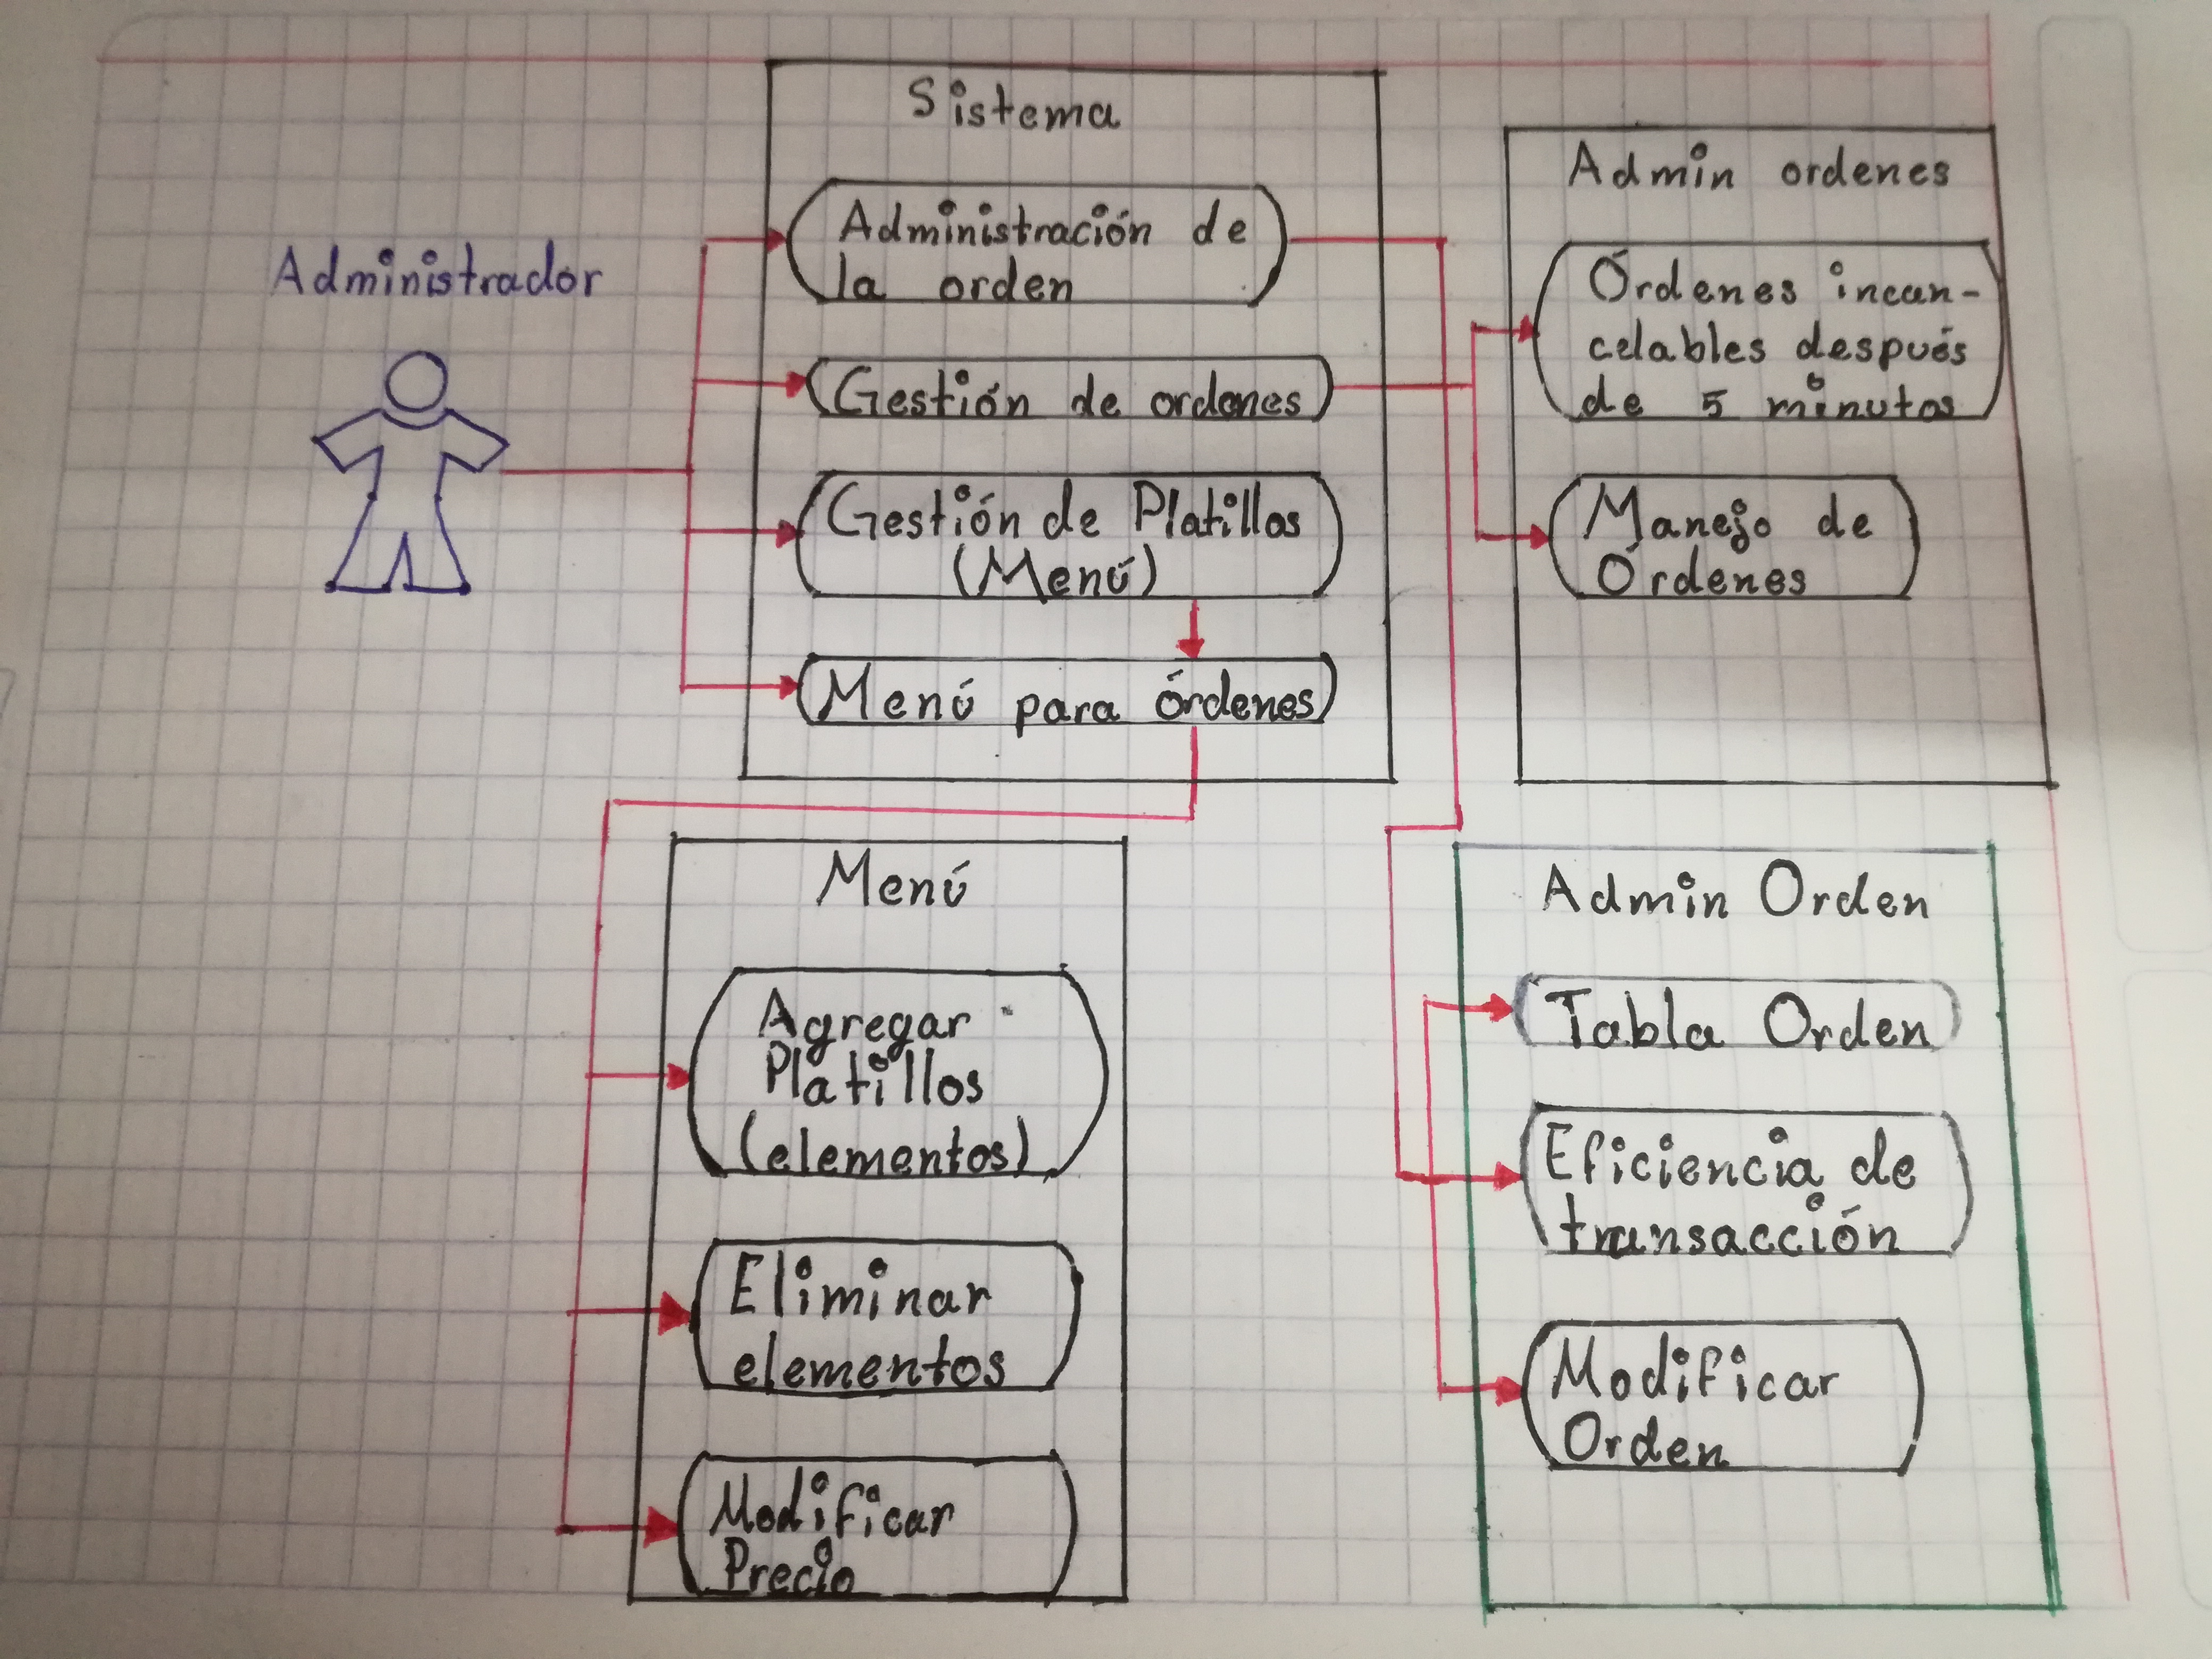 Administrador
Sistema
Administración de
la orden
Gestión de ordenes
Gestión de Platillos
(Menú)
Menú para órdenes
Admin ordenes
Órdenes incan-
celables después
de 5 minutos
Manejo de
Órdenes
Menú
Agregar
Platillos
(elementos)
Eliminar
elementos
Modificar
Precio
Admin Orden
Tabla Orden
Eficiencia de
transacción
Modificar
Orden